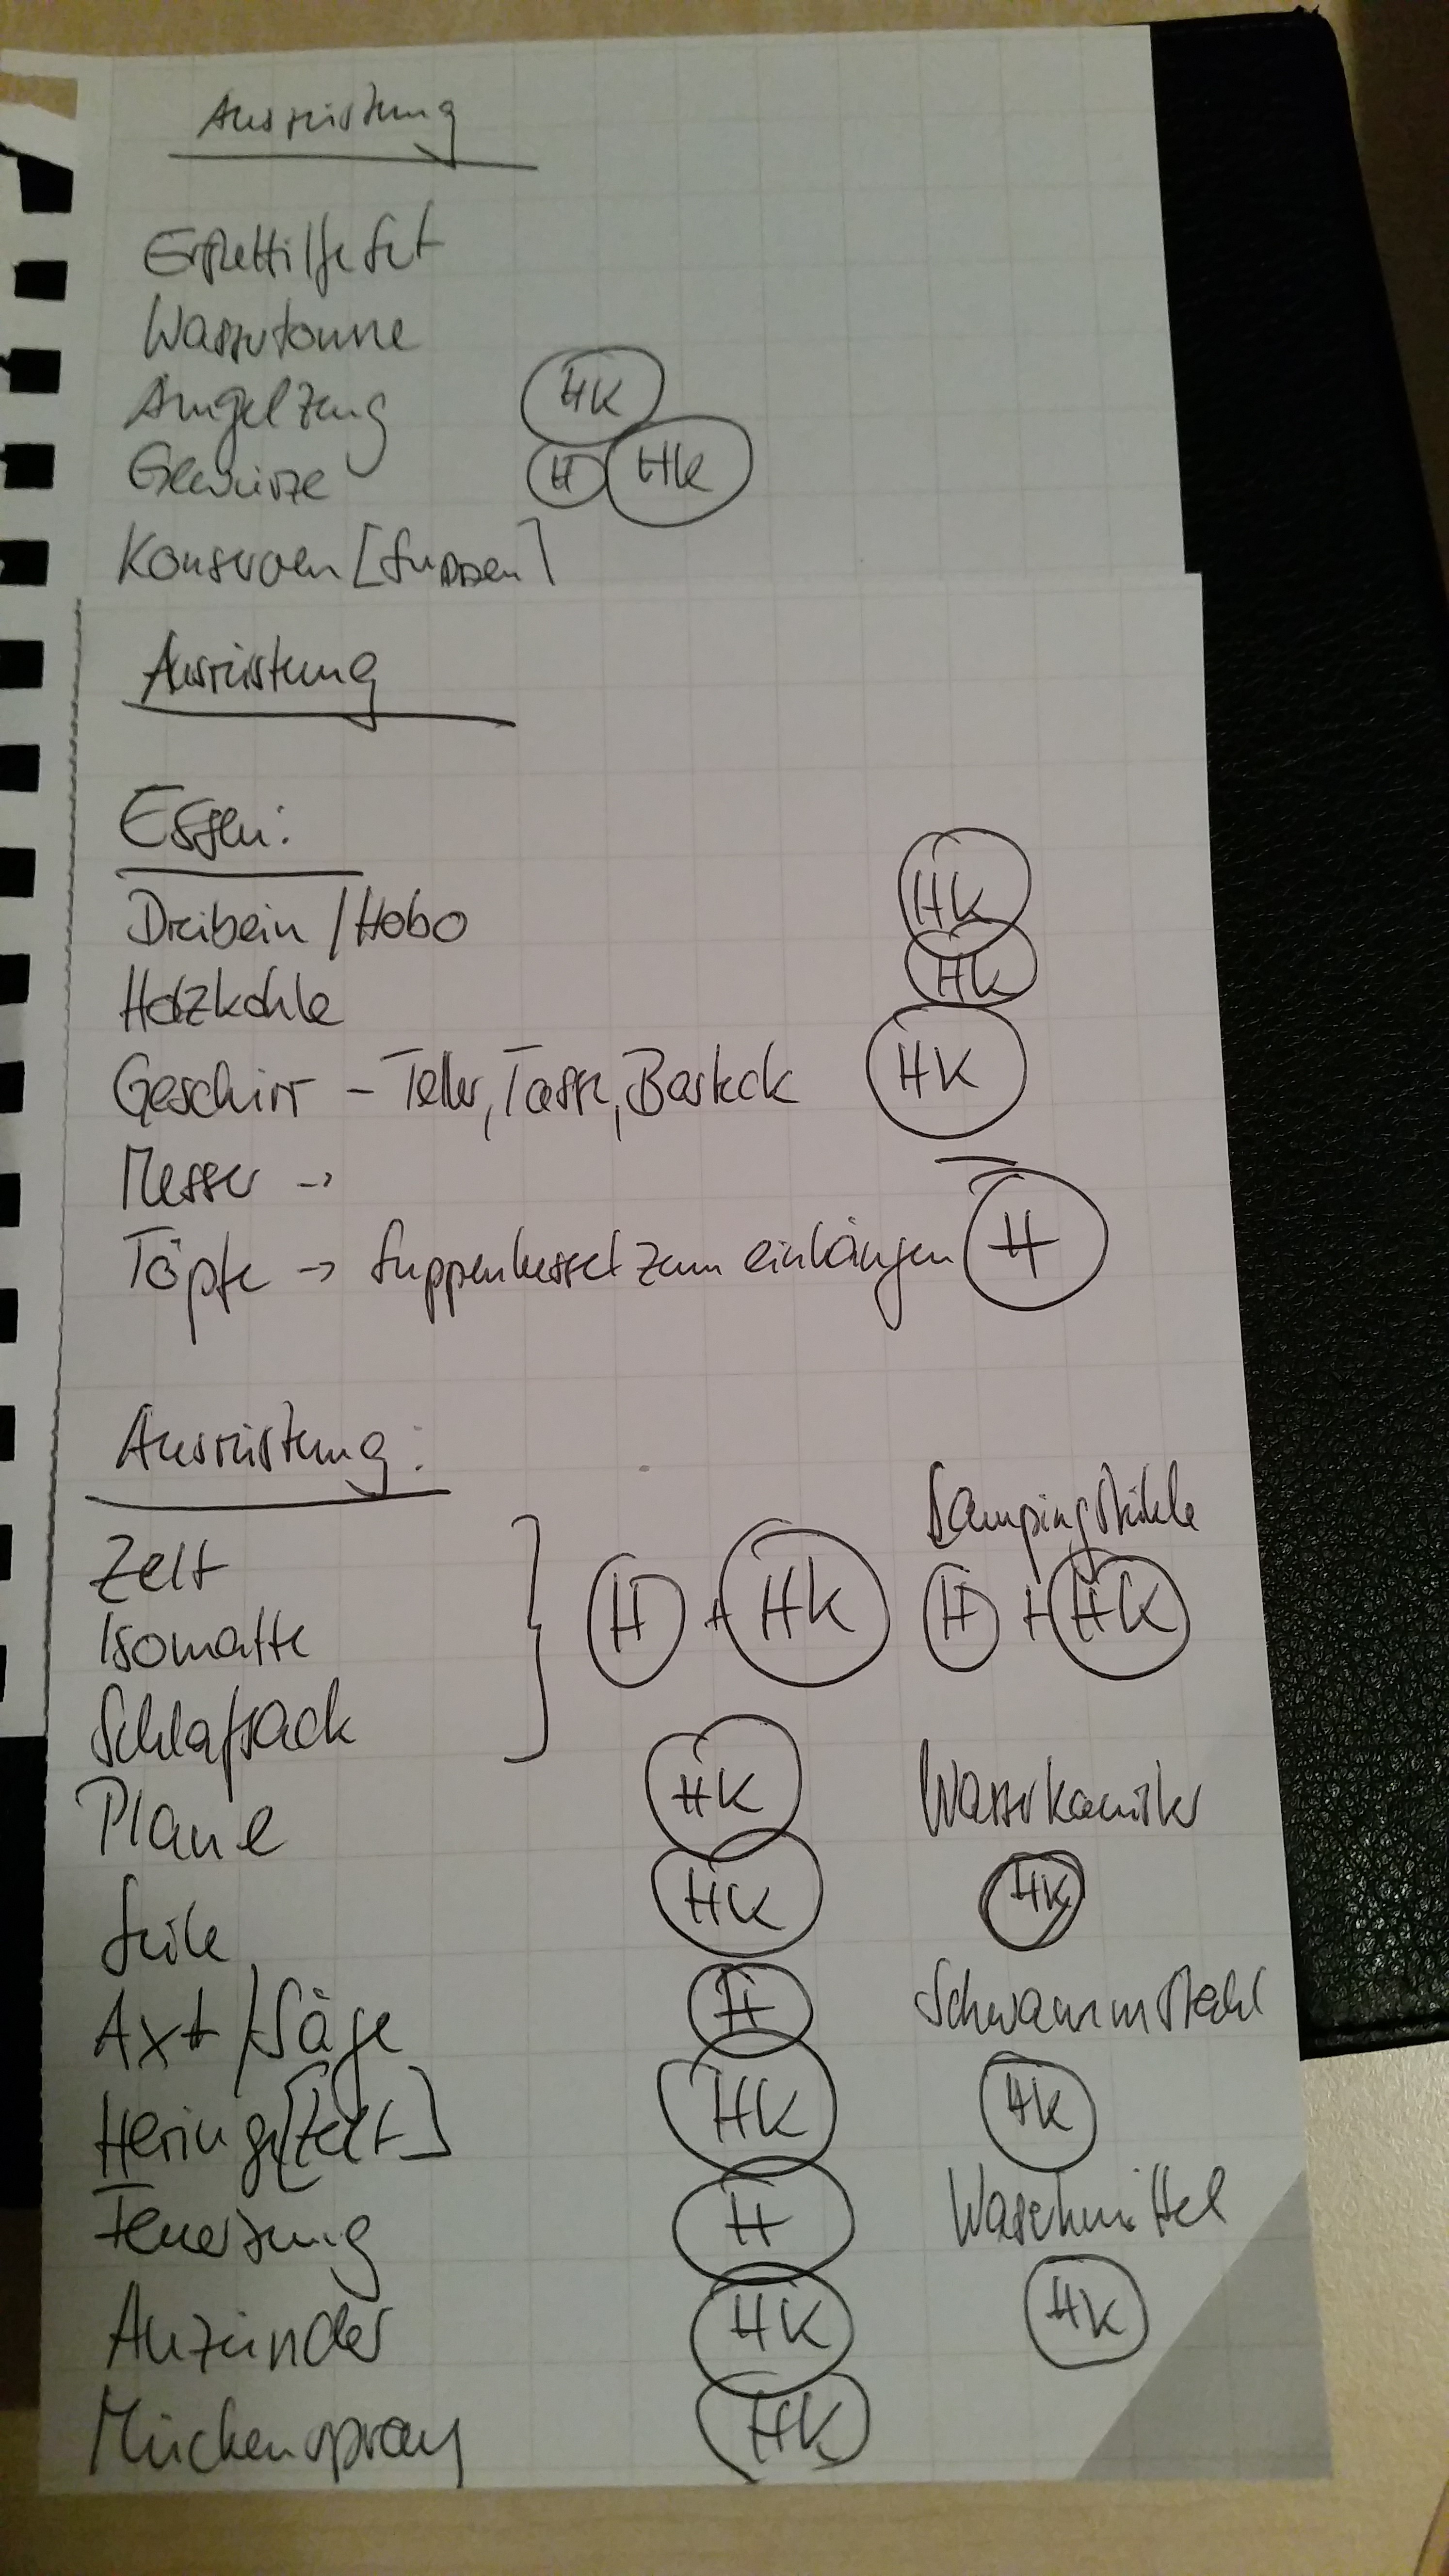 Ausrüstung
Erstehilfeset
Wassertonne
Angelzeug HK
Gewürze H HK
Konserven [Suppen]
Ausrüstung
Essen:
Dreibein / Hobo HK
Holzkohle HK
Geschirr – Teller, Tasse, Besteck HK
Messer →
Töpfe → Suppenkessel zum einhängen H
Ausrüstung:
Campingstühle
Zelt
Isomatte } H + HK H + HK
Schlafsack
Plane HK Wasserkanister
Seile HK HK
Axt / Säge H Schwamm Stahl
Hering [Zelt] HK HK
Feuerzeug H Waschmittel
Anzünder HK HK
Mückenspray HK